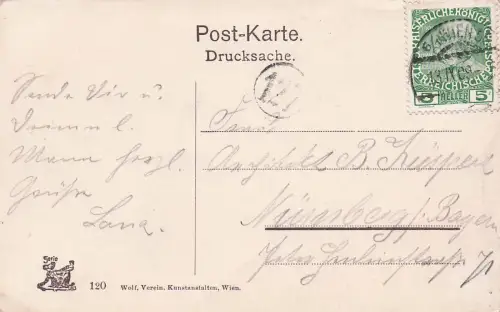 Post-Karte.
Drucksache.
KAISERLICHEKÖNIGLICHE
ÖSTERREICHISCHE
5 HELLER 5
127
Sende Dir u.
Deinem l.
Mann herzl.
Grüße
Lana.
Frau
Architekt B.
Nürnberg / Bayern
Serie
120 Wolf, Verein. Kunstanstalten, Wien.